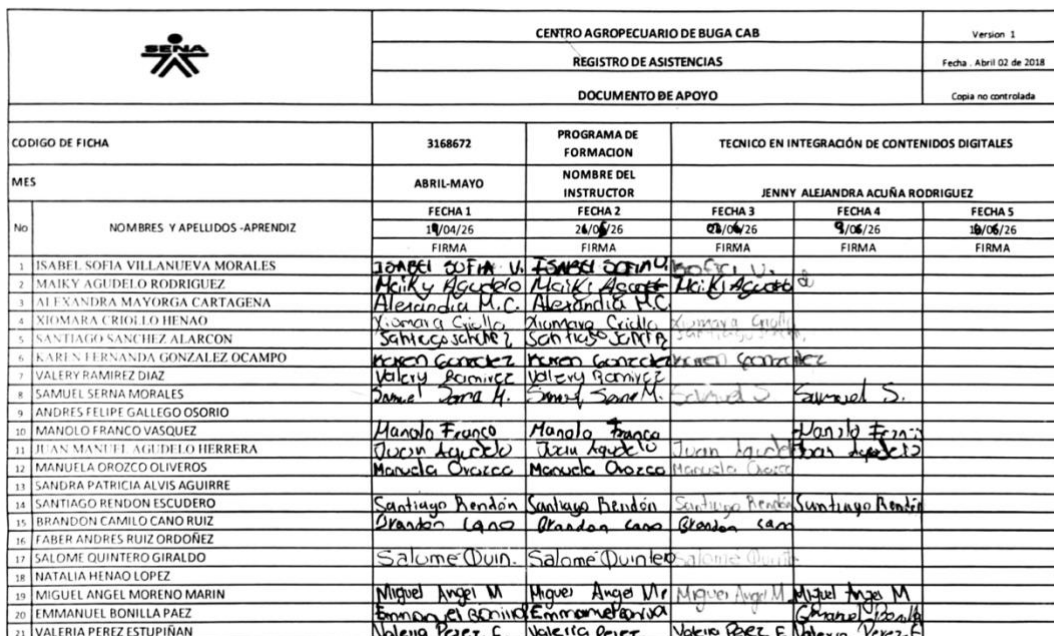 SENA
CENTRO AGROPECUARIO DE BUGA CAB
Version 1
REGISTRO DE ASISTENCIAS
Fecha . Abril 02 de 2018
DOCUMENTO DE APOYO
Copia no controlada
CODIGO DE FICHA 3168672 PROGRAMA DE FORMACION TECNICO EN INTEGRACIÓN DE CONTENIDOS DIGITALES
MES ABRIL-MAYO NOMBRE DEL INSTRUCTOR JENNY ALEJANDRA ACUÑA RODRIGUEZ
No NOMBRES Y APELLIDOS -APRENDIZ FECHA 1 FECHA 2 FECHA 3 FECHA 4 FECHA 5
/04/26 /26 /26 /06/26 /06/26
FIRMA FIRMA FIRMA FIRMA FIRMA
1 ISABEL SOFIA VILLANUEVA MORALES ISABEL SOFIA V. ISABEL SOFIA V.
2 MAIKY AGUDELO RODRIGUEZ Maiky Agudelo Maiki Maiki
3 ALEXANDRA MAYORGA CARTAGENA Alexandra M.C. Alexandra M.C
4 XIOMARA CRIOLLO HENAO Xiomara Criollo Xiomara Criollo Xiomara
5 SANTIAGO SANCHEZ ALARCON Santiago Sanchez Santiago
6 KAREN FERNANDA GONZALEZ OCAMPO Karen Gonzalez Karen Gonzalez Karen Gonzalez
7 VALERY RAMIREZ DIAZ Valery Ramirez Valery Ramirez
8 SAMUEL SERNA MORALES Samuel S. Samuel S.
9 ANDRES FELIPE GALLEGO OSORIO
10 MANOLO FRANCO VASQUEZ Manolo Franco Manolo Franco Manolo
11 JUAN MANUEL AGUDELO HERRERA Juan Agudelo Juan Agudelo Juan Juan Agudelo
12 MANUELA OROZCO OLIVEROS Manuela Orozco Manuela Orozco Manuela Orozco
13 SANDRA PATRICIA ALVIS AGUIRRE
14 SANTIAGO RENDON ESCUDERO Santiago Rendón Santiago Rendón Santiago Rendón Santiago Rendón
15 BRANDON CAMILO CANO RUIZ Brandon Cano Brandon Cano Brandon Cano
16 FABER ANDRES RUIZ ORDOÑEZ
17 SALOME QUINTERO GIRALDO Salomé Quin. Salomé Salomé
18 NATALIA HENAO LOPEZ
19 MIGUEL ANGEL MORENO MARIN Miguel Angel M Miguel Angel Miguel Angel M Miguel Angel M
20 EMMANUEL BONILLA PAEZ Emmanuel
21 VALERIA PEREZ ESTUPIÑAN Valeria Perez E. Valeria Perez Valeria Perez E Valeria Perez E